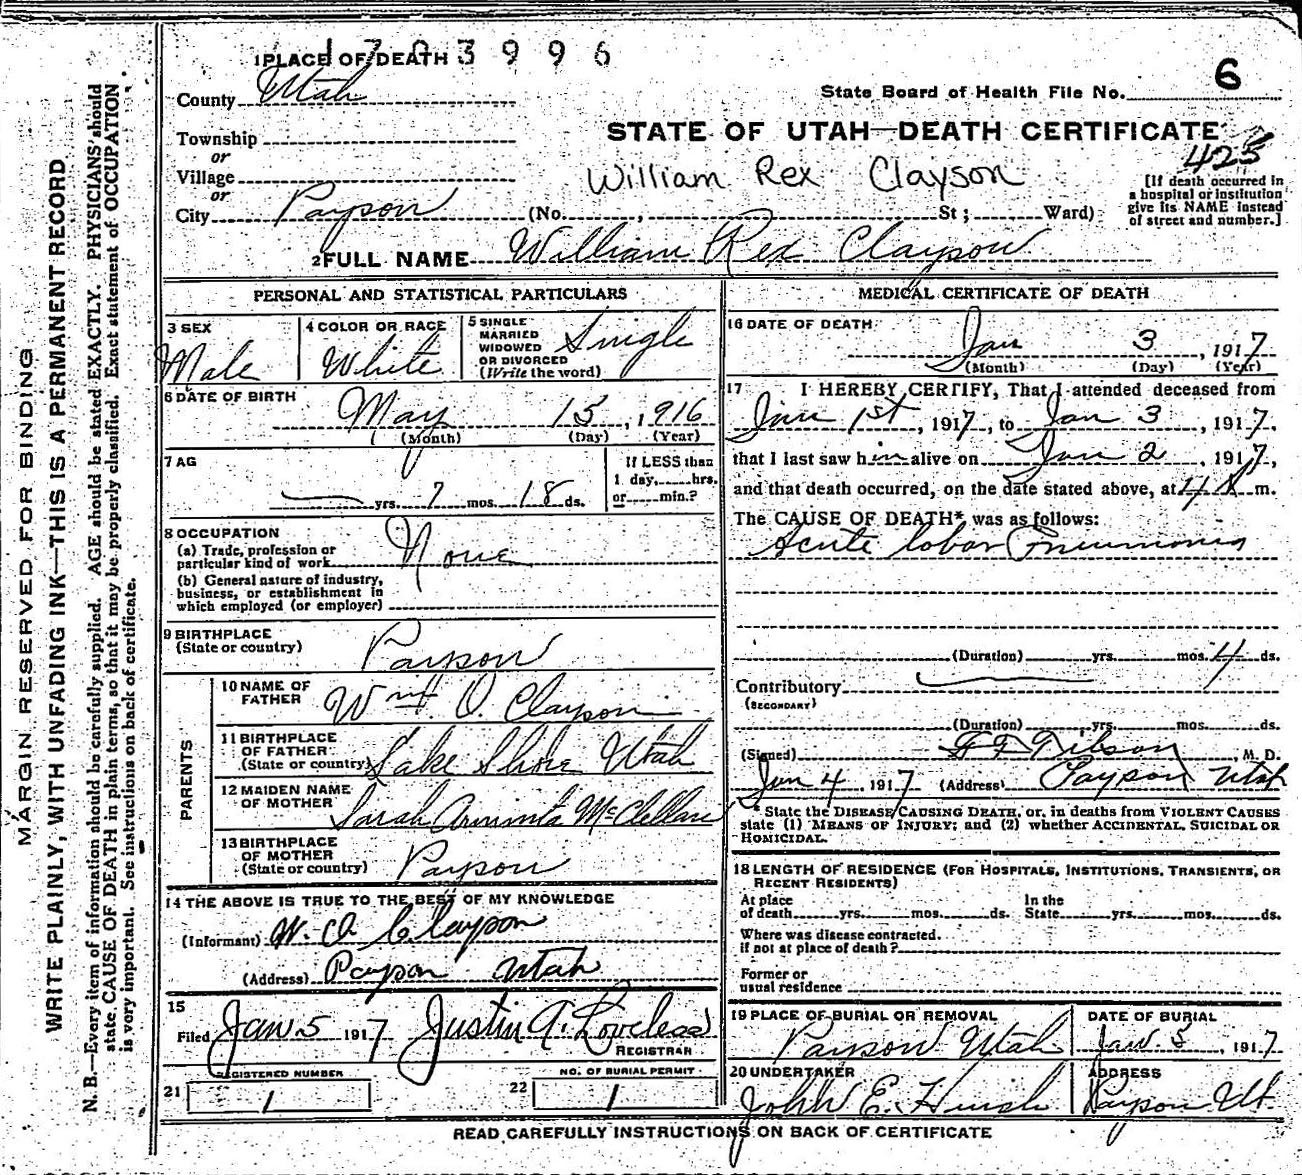 1 PLACE OF DEATH
1703996
County Utah
State Board of Health File No. 6
Township
or
Village
or
City Payson (No. , St; Ward)
STATE OF UTAH—DEATH CERTIFICATE
425
William Rex Clayson
[If death occurred in
a hospital or institution
give its NAME instead
of street and number.]
2 FULL NAME William Rex Clayson
PERSONAL AND STATISTICAL PARTICULARS
3 SEX
Male
4 COLOR OR RACE
White
5 SINGLE
MARRIED
WIDOWED
OR DIVORCED
(Write the word)
Single
6 DATE OF BIRTH
May 15, 1916
(Month) (Day) (Year)
7 AG
yrs. 7 mos. 18 ds.
If LESS than
1 day, hrs.
or min.?
8 OCCUPATION
(a) Trade, profession or
particular kind of work None
(b) General nature of industry,
business, or establishment in
which employed (or employer)
9 BIRTHPLACE
(State or country) Payson
PARENTS
10 NAME OF
FATHER Wm. O. Clayson
11 BIRTHPLACE
OF FATHER
(State or country) Lake Shore Utah
12 MAIDEN NAME
OF MOTHER Sarah Arminta McClellan
13 BIRTHPLACE
OF MOTHER
(State or country) Payson
14 THE ABOVE IS TRUE TO THE BEST OF MY KNOWLEDGE
(Informant) W. O. Clayson
(Address) Payson Utah
15
Filed Jan. 5 1917 Justin A. Loveless
REGISTRAR
21 REGISTERED NUMBER
1
22 NO. OF BURIAL PERMIT
1
MEDICAL CERTIFICATE OF DEATH
16 DATE OF DEATH
Jan 3, 1917
(Month) (Day) (Year)
17 I HEREBY CERTIFY, That I attended deceased from
Jan 1st, 1917, to Jan 3, 1917,
that I last saw him alive on Jan 2, 1917,
and that death occurred, on the date stated above, at 4 m.
The CAUSE OF DEATH* was as follows:
Acute lobar Pneumonia
(Duration) yrs. mos. 4 ds.
Contributory
(SECONDARY)
(Duration) yrs. mos. ds.
(Signed) M. D.
Jan 4, 1917 (Address) Payson Utah
* State the DISEASE CAUSING DEATH, or, in deaths from VIOLENT CAUSES
state (1) MEANS OF INJURY; and (2) whether ACCIDENTAL, SUICIDAL OR
HOMICIDAL.
18 LENGTH OF RESIDENCE (FOR HOSPITALS, INSTITUTIONS, TRANSIENTS, OR
RECENT RESIDENTS)
At place
of death yrs. mos. ds.
In the
State yrs. mos. ds.
Where was disease contracted.
if not at place of death?
Former or
usual residence
19 PLACE OF BURIAL OR REMOVAL
Payson Utah
DATE OF BURIAL
Jan. 5, 1917
20 UNDERTAKER
John E. Huish
ADDRESS
Payson Ut.
READ CAREFULLY INSTRUCTIONS ON BACK OF CERTIFICATE
MARGIN RESERVED FOR BINDING
WRITE PLAINLY, WITH UNFADING INK—THIS IS A PERMANENT RECORD
N. B.—Every item of information should be carefully supplied. AGE should be stated EXACTLY. PHYSICIANS should
state CAUSE OF DEATH in plain terms, so that it may be properly classified. Exact statement of OCCUPATION
is very important. See instructions on back of certificate.